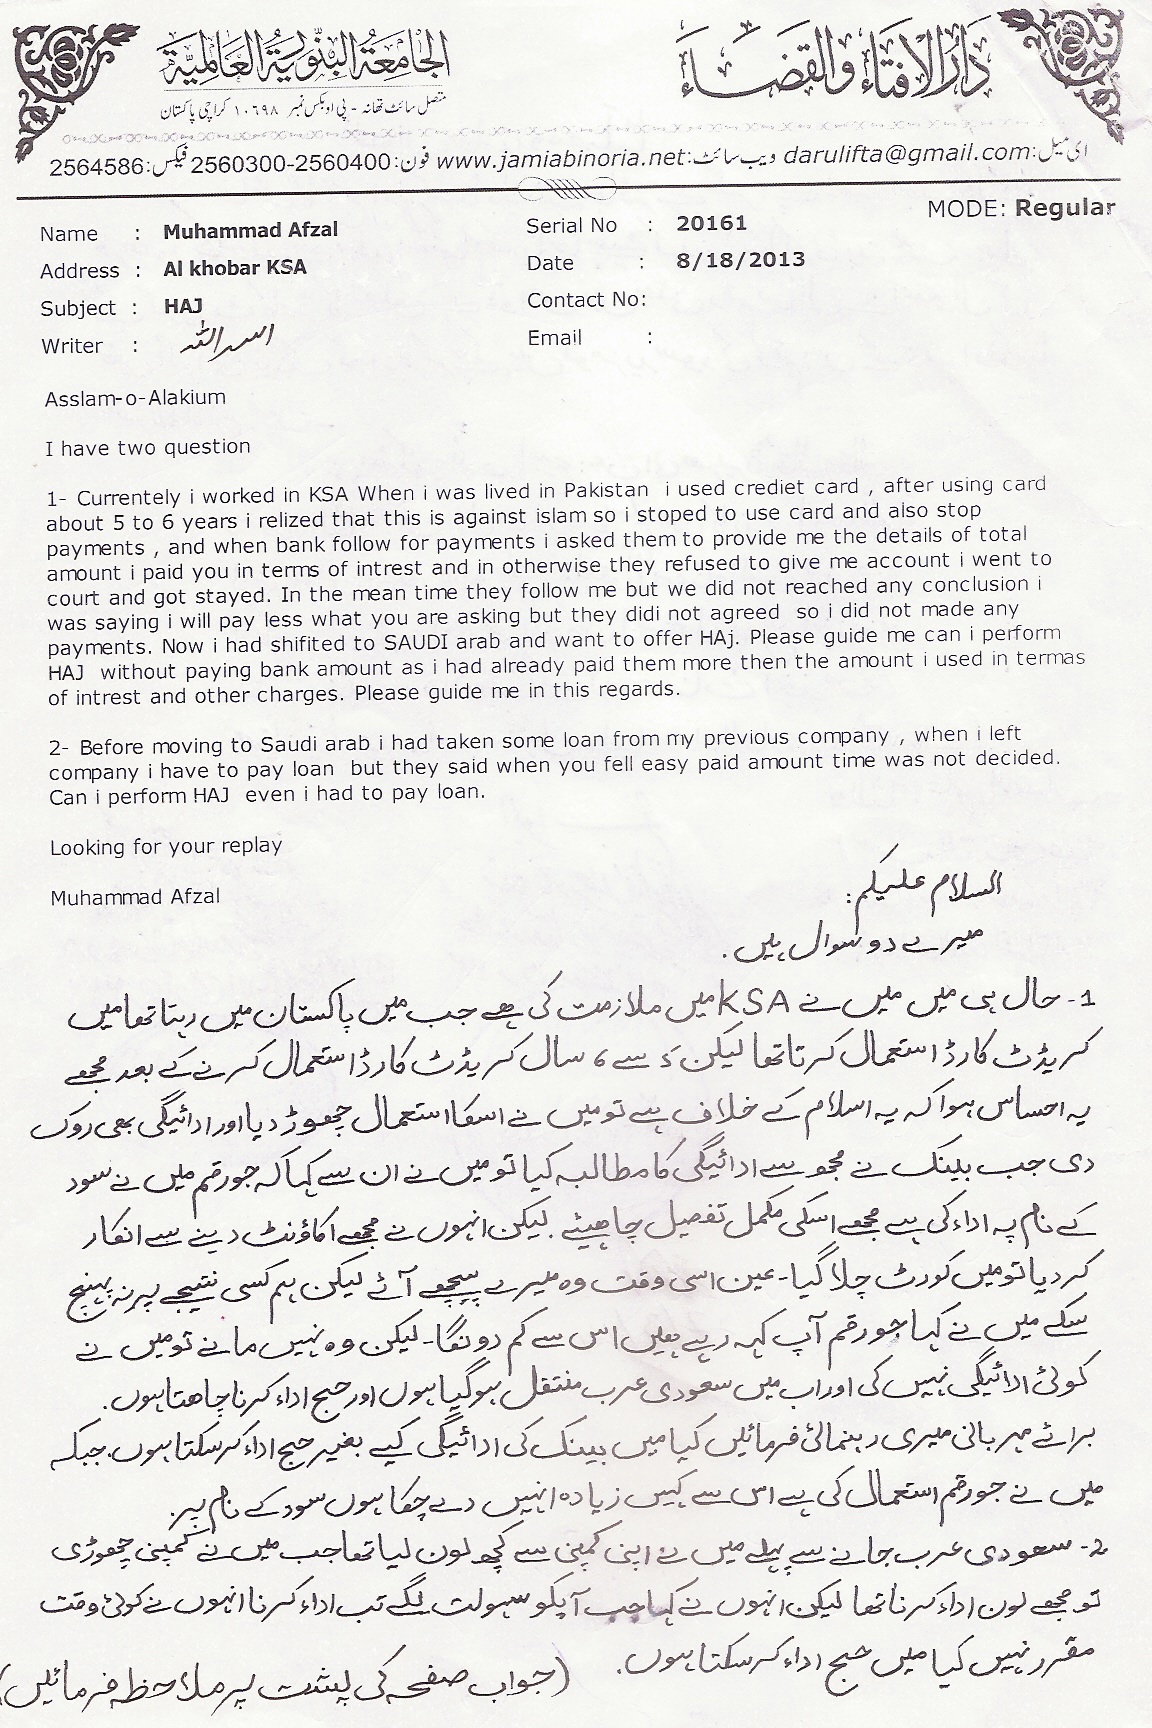 الجامعة البنورية العالمية
دار الافتاء والقضاء
متصل سائٹ تھانہ - پی او بکس نمبر ۱۰۶۹۸ کراچی پاکستان
ای میل:darulifta@gmail.com ویب سائٹ:www.jamiabinoria.net فون:2560300-2560400 فیکس:2564586
MODE: Regular
Name : Muhammad Afzal Serial No : 20161
Address : Al khobar KSA Date : 8/18/2013
Subject : HAJ Contact No:
Writer : اسد اللہ Email :
Asslam-o-Alakium
I have two question
1- Currentely i worked in KSA When i was lived in Pakistan i used crediet card , after using card
about 5 to 6 years i relized that this is against islam so i stoped to use card and also stop
payments , and when bank follow for payments i asked them to provide me the details of total
amount i paid you in terms of intrest and in otherwise they refused to give me account i went to
court and got stayed. In the mean time they follow me but we did not reached any conclusion i
was saying i will pay less what you are asking but they didi not agreed so i did not made any
payments. Now i had shifited to SAUDI arab and want to offer HAj. Please guide me can i perform
HAJ without paying bank amount as i had already paid them more then the amount i used in termas
of intrest and other charges. Please guide me in this regards.
2- Before moving to Saudi arab i had taken some loan from my previous company , when i left
company i have to pay loan but they said when you fell easy paid amount time was not decided.
Can i perform HAJ even i had to pay loan.
Looking for your replay
Muhammad Afzal
السلام علیکم:
میرے دو سوال ہیں.
1- حال ہی میں میں نے KSA میں ملازمت کی ہے جب میں پاکستان میں رہتا تھا میں
کریڈٹ کارڈ استعمال کرتا تھا لیکن ۵ سے ۶ سال کریڈٹ کارڈ استعمال کرنے کے بعد مجھے
یہ احساس ہوا کہ یہ اسلام کے خلاف ہے تو میں نے اسکا استعمال چھوڑ دیا اور ادائیگی بھی روک
دی جب بینک نے مجھ سے ادائیگی کا مطالبہ کیا تو میں نے ان سے کہا کہ جو رقم میں نے سود
کے نام پہ اداء کی ہے مجھے اسکی مکمل تفصیل چاھیئے لیکن انہوں نے مجھے اکاؤنٹ دینے سے انکار
کر دیا تو میں کورٹ چلا گیا - عین اسی وقت وہ میرے پیچھے آئے لیکن ہم کسی نتیجے پر نہ پہنچ
سکے میں نے کہا جو رقم آپ کہہ رہے ہیں اس سے کم دونگا - لیکن وہ نہیں مانے تو میں نے
کوئی ادائیگی نہیں کی اور اب میں سعودی عرب منتقل ہو گیا ہوں اور حج اداء کرنا چاھتا ہوں.
برائے مہربانی میری رہنمائی فرمائیں کیا میں بینک کی ادائیگی کیے بغیر حج اداء کر سکتا ہوں، جبکہ
میں نے جو رقم استعمال کی ہے اس سے کہیں زیادہ انہیں دے چکا ہوں سود کے نام پر.
2- سعودی عرب جانے سے پہلے میں نے اپنی کمپنی سے کچھ لون لیا تھا جب میں نے کمپنی چھوڑی
تو مجھے لون اداء کرنا تھا لیکن انہوں نے کہا جب آپکو سہولت لگے تب اداء کرنا انہوں نے کوئی وقت
مقرر نہیں کیا میں حج اداء کر سکتا ہوں.
(جواب صفحہ کی پشت پر ملاحظہ فرمائیں)